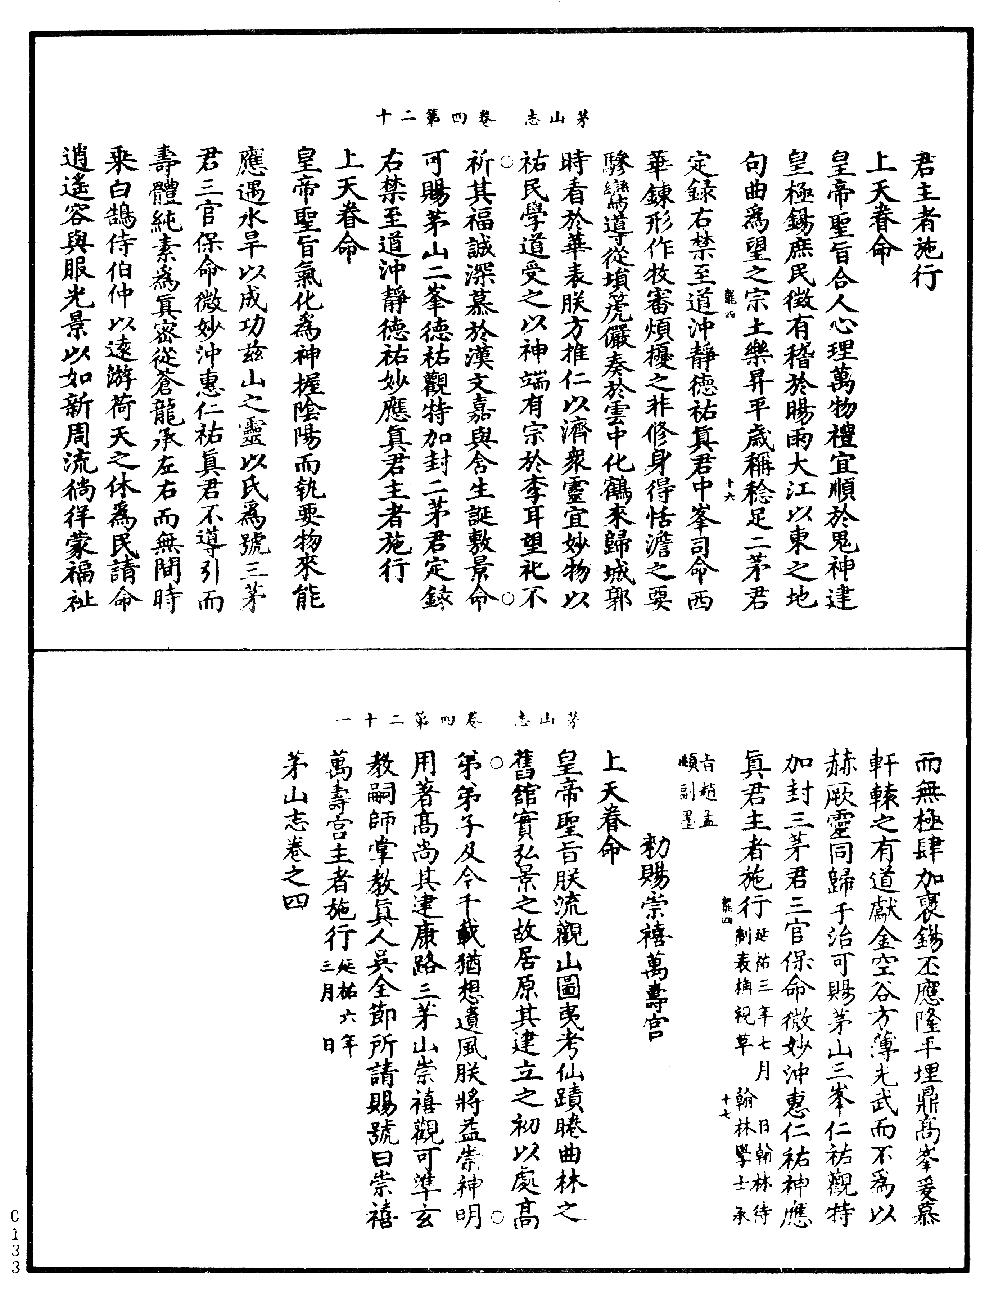 茅山志　卷四第二十
君主者施行
上天眷命
皇帝聖旨合人心理萬物禮宜順於鬼神建
皇極錫庶民徵有稽於暘雨大江以東之地
句曲爲望之宗土樂昇平歲稱稔足二茅君
龍四
十六
定録右禁至道沖靜德祐真君中峯司命西
華鍊形作牧審煩擾之非修身得恬澹之要
驂鸞前導從塤箎儼奏於雲中化鶴來歸城郭
時看於華表朕方推仁以濟衆靈宜妙物以
祐民學道受之以神端有宗於李耳望祀不
祈其福誠深慕於漢文嘉與含生誕敷景命
可賜茅山二峯德祐觀特加封二茅君定録
右禁至道沖靜德祐妙應真君主者施行
上天眷命
皇帝聖旨氣化爲神握陰陽而執要物來能
應遇水旱以成功兹山之靈以氏爲號三茅
君三官保命微妙沖惠仁祐真君不導引而
壽體純素爲真密從蒼龍承左右而無間時
乘白鵠侍伯仲以遠游荷天之休爲民請命
逍遙容與服光景以如新周流徜徉蒙福祉
茅山志　卷四第二十一
而無極肆加褒錫丕應隆平埋鼎高峯爰慕
軒轅之有道獻金空谷方薄光武而不爲以
赫厥靈同歸于治可賜茅山三峯仁祐觀特
加封三茅君三官保命微妙沖惠仁祐神應
真君主者施行延祐三年七月　日翰林待
制袁桷視草　翰林學士承
龍四
十七
旨趙孟
頫副墨
勑賜崇禧萬壽宫
上天眷命
皇帝聖旨朕流觀山圖夷考仙蹟睠曲林之
舊館實弘景之故居原其建立之初以處高
第弟子及今千載猶想遺風朕將益崇神明
用著高尚其建康路三茅山崇禧觀可準玄
教嗣師掌教真人吳全節所請賜號曰崇禧
萬壽宫主者施行延祐六年
三月　日
茅山志卷之四
C133